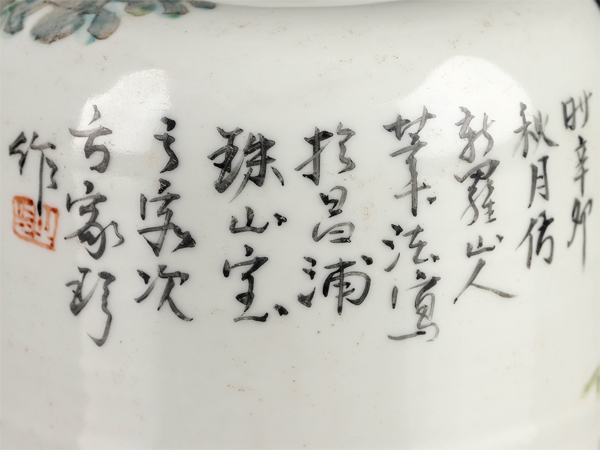 时辛卯
秋月仿
新羅山人
筆法寫
於昌浦
珠山室
之客次
方家珍
作